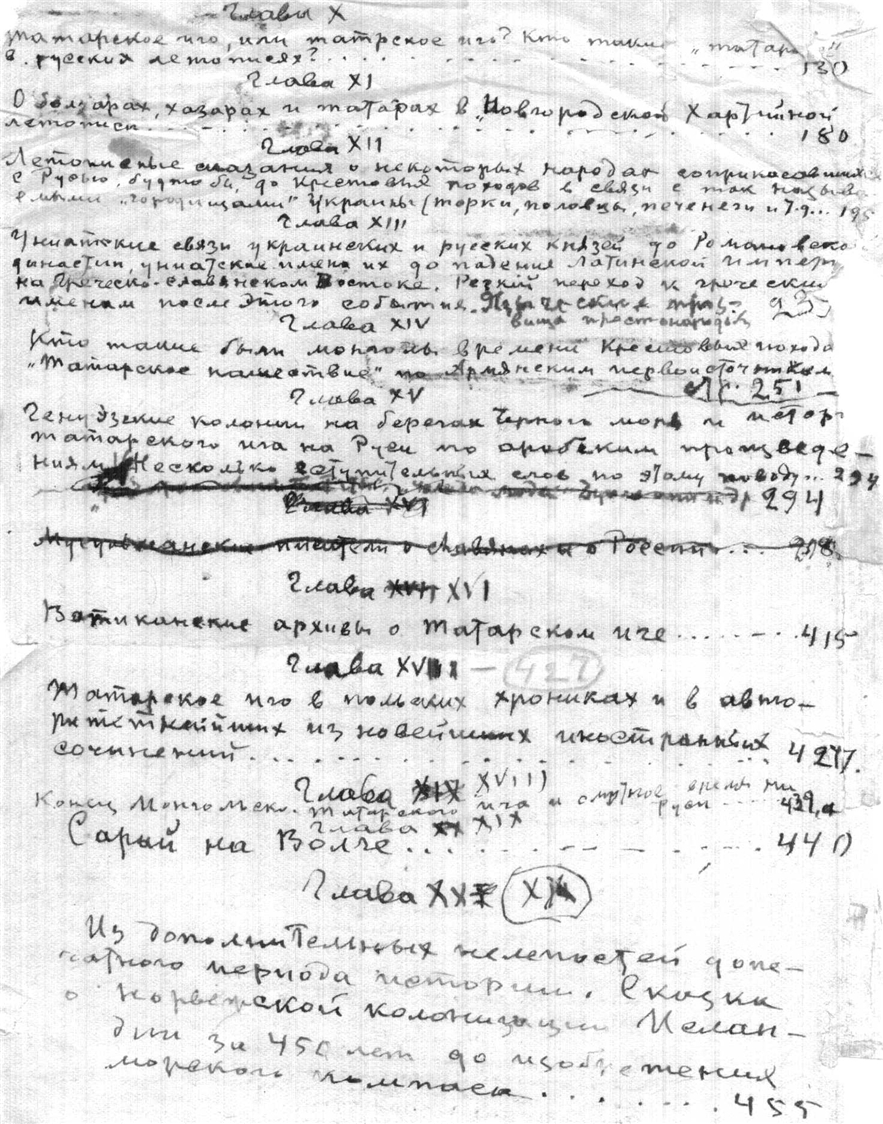 Главы X
Татарское иго, или татрское иго? Кто такие „татары"
в русских летописях? . . . 130
Глава XI
О болгарах, хазарах и татарах в „Новгородской Харатийной
летописи . . . 180
Глава XII
Летописные сказания о некоторых народах соприкасавшихся
с Русью, будто бы, до Крестовых походов в связи с так называ
емыми „городищами" Украины (торки, половцы, печенеги и т.д... 195
Глава XIII
Униатские связи украинских и русских князей до Романовской
династии, униатские имена их до падения Латинской империи
на Греческо-славянском Востоке. Резкий переход к греческим
именам после этого события. Языческие проз-
вища простонародья 235
Глава XIV
Кто такие были монголы времени Крестовых похода
„Татарское нашествие" по Армянским первоисточникам
251
Глава XV
Генуэзские колонии на берегах Черного моря и истор
татарского ига на Руси по арабским произведе-
ниям. Несколько вступительных слов по этому поводу... 294
294
Глава XVI
Мусульманские писатели о славянах и о России... 298
Глава XVII XVI
Ватиканские архивы о татарском иге . . . 415
Глава XVII — 427
Татарское иго в польских хрониках и в авто-
ритетнейших из новейших иностранных
сочинений . . . 427
Глава XIX XVIII
Конец Монгольско-Татарского ига и смутное время на
Руси 439,а
Глава XX XIX
Сарай на Волге . . . 440
Глава XXI XX
Из дополнительных нелепостей допе-
чатного периода истории. Сказка
о норвежской колонизации Ислан-
дии за 450 лет до изобретения
морского компаса . . . 455